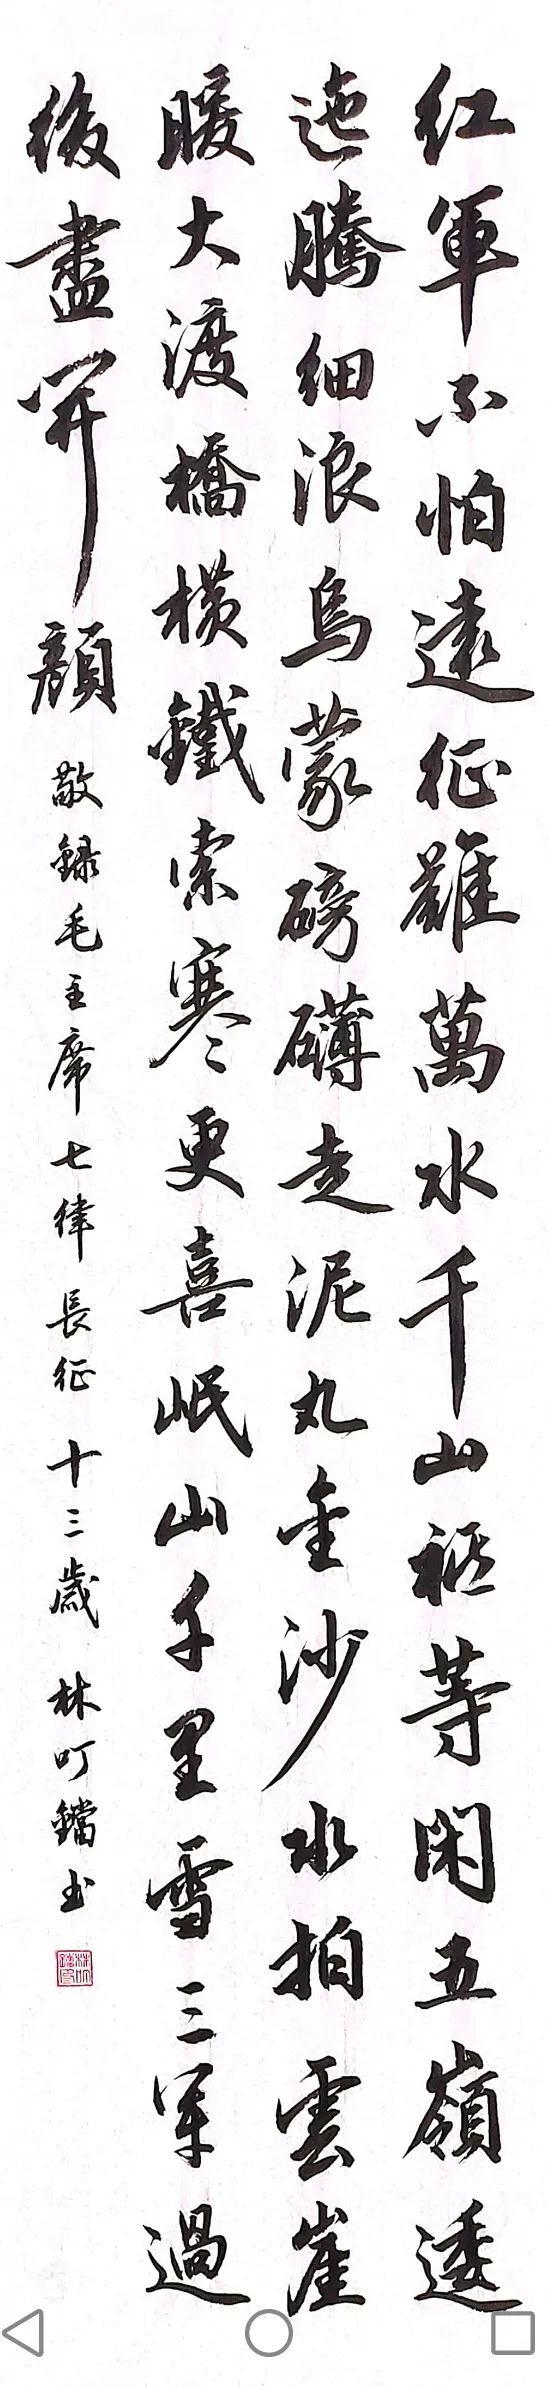 紅軍不怕遠征難萬水千山祗等閑五嶺逶
迤騰細浪烏蒙磅礴走泥丸金沙水拍雲崖
暖大渡橋橫鐵索寒更喜岷山千里雪三軍過
後盡開顏
敬録毛主席七律長征 十三歲 林叮鐺书